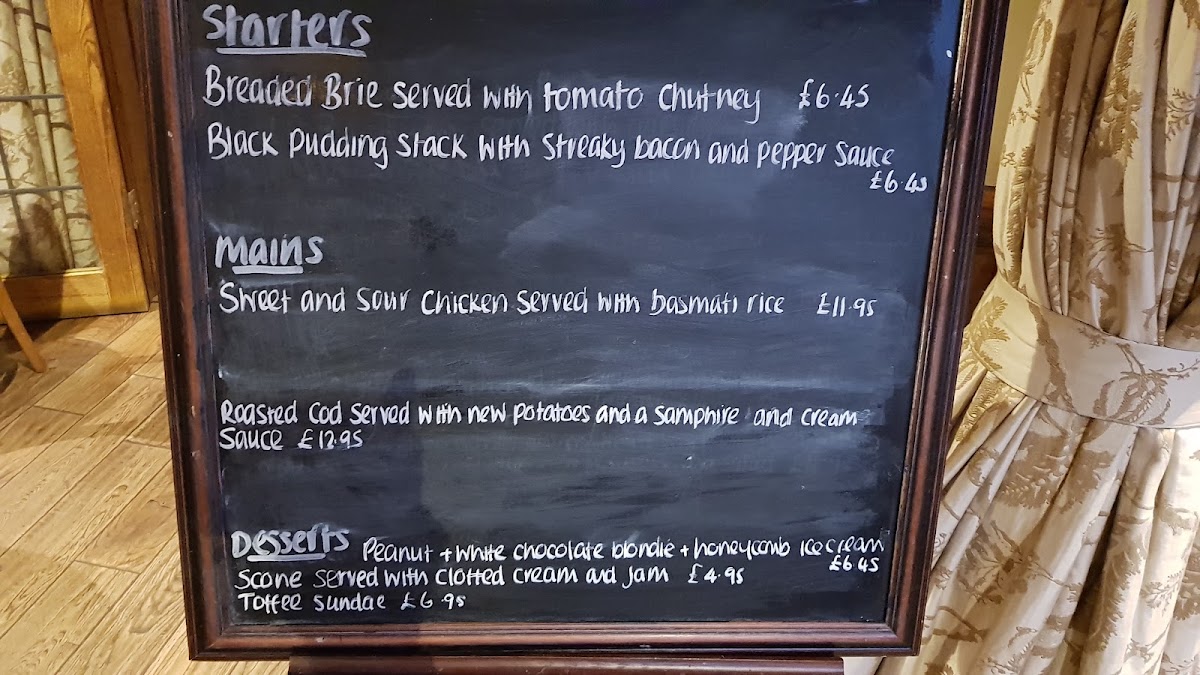 Starters
Breaded Brie served with tomato chutney £6.45
Black Pudding stack with streaky bacon and pepper sauce
£6.45
Mains
Sweet and sour chicken served with basmati rice £11.95
Roasted Cod served with new potatoes and a samphire and cream
sauce £12.95
Desserts Peanut + white chocolate blondie + honeycomb ice cream
£6.45
Scone served with clotted cream and jam £4.95
Toffee sundae £6.95